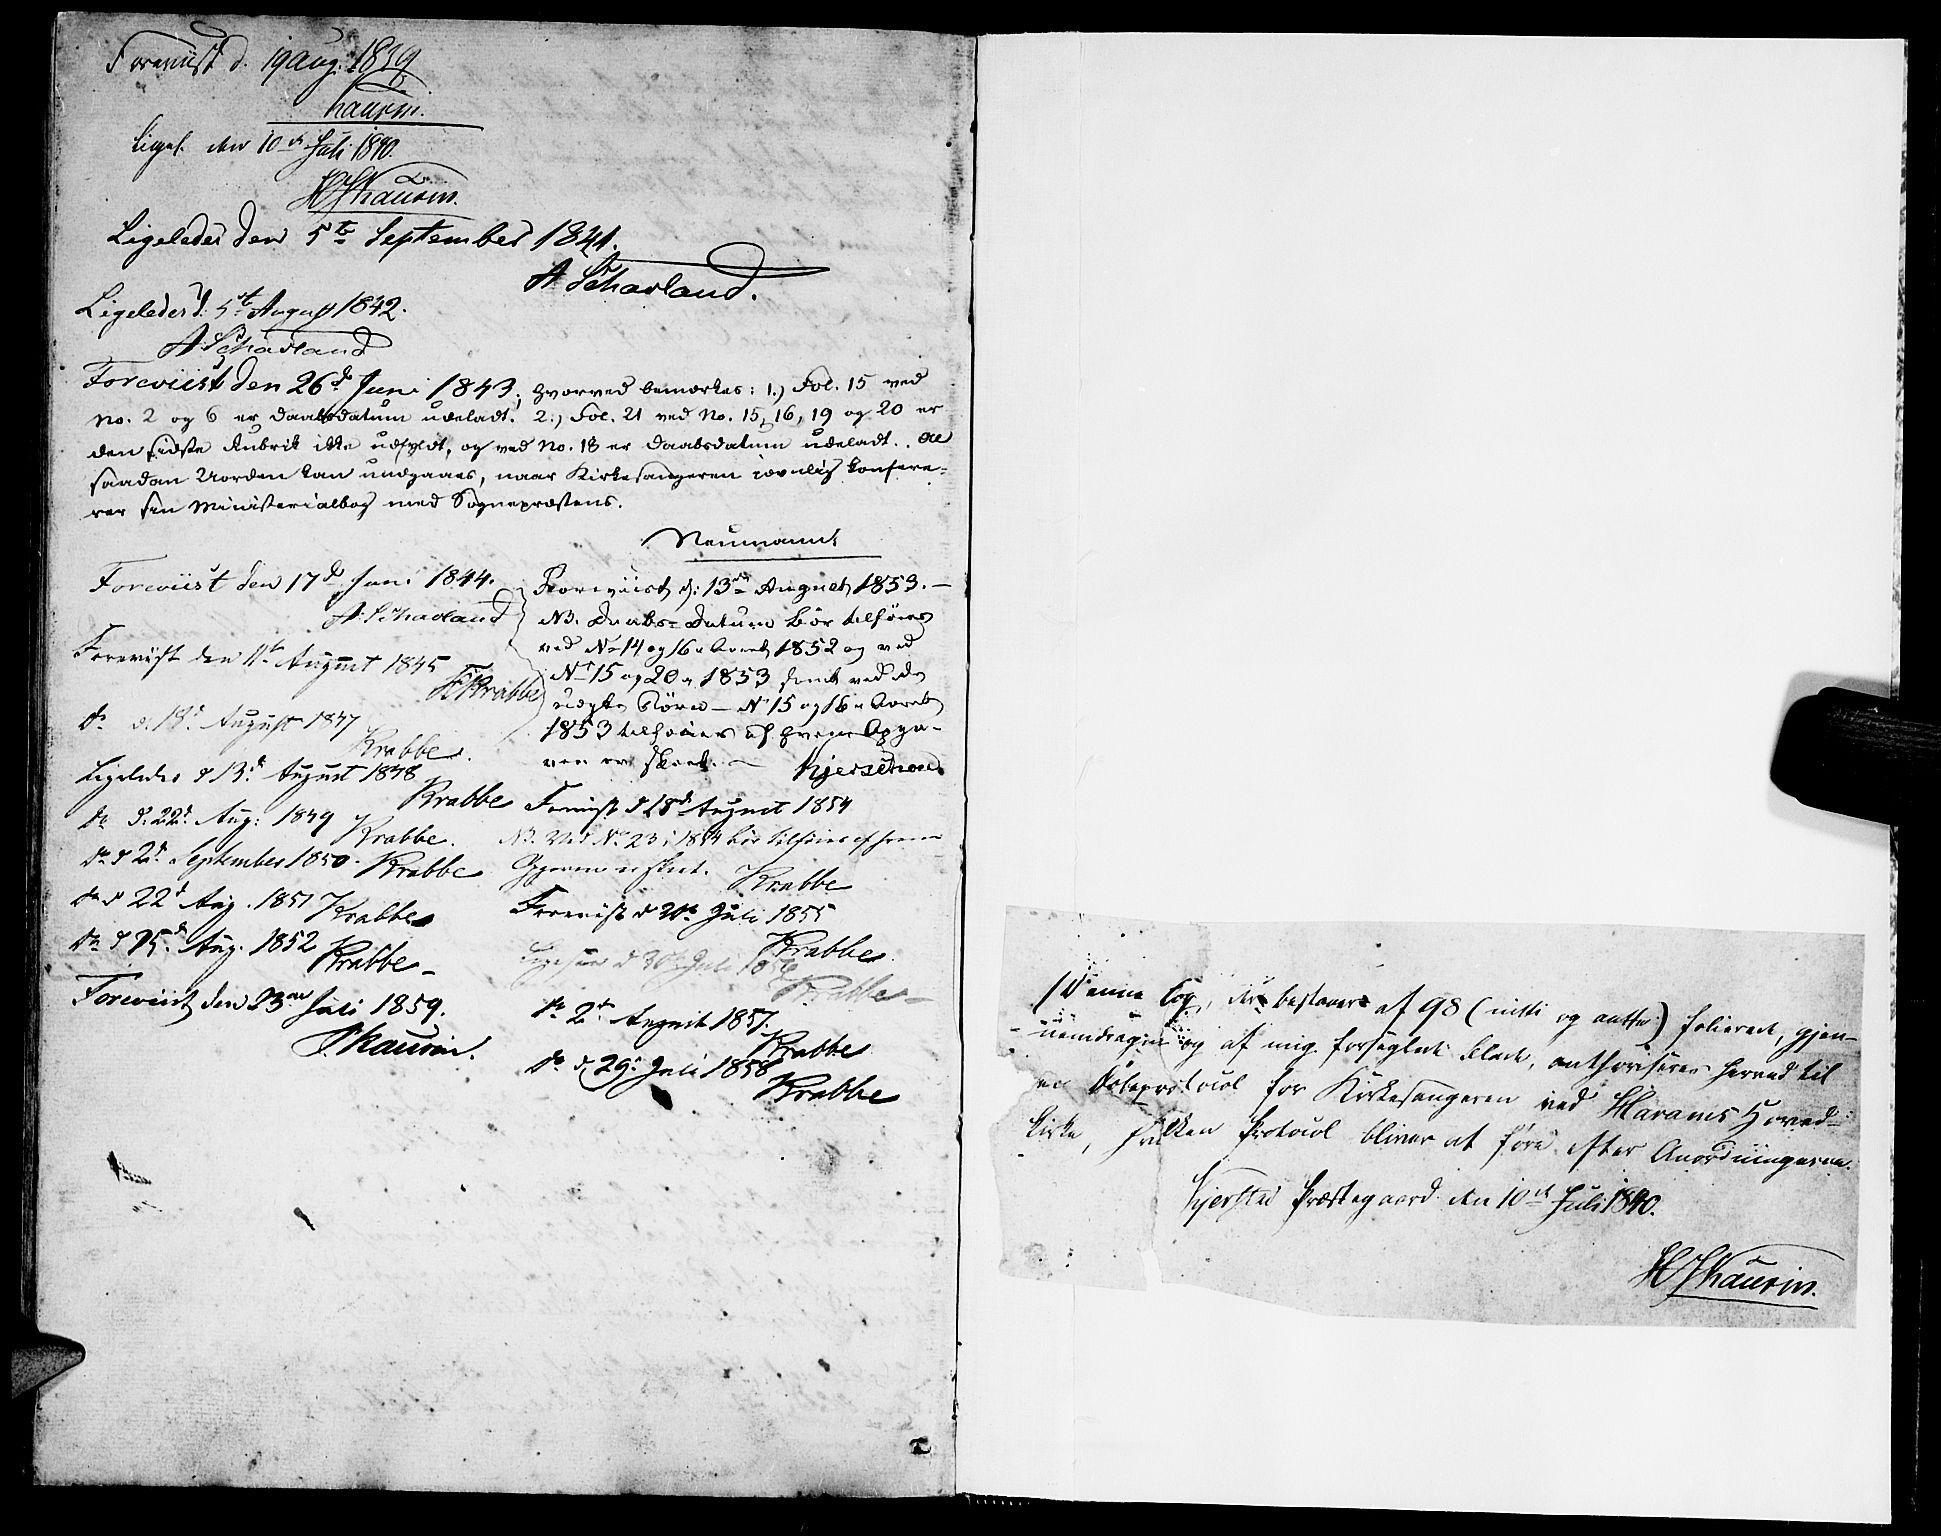 Foreviist d. 19 Aug: 1839
Thaurin.
Ligel. den 10de Juli 1840.
H S Thaurin.
Ligeledes den 5te September 1841.
A. Scharland.
Ligeledes d: 5te August 1842.
A. Scharland
Foreviist den 26de Juni 1843; hvorved bemærkes: 1.) Fol. 15 ved
No. 2 og 6 er Daabsdatum udeladt. 2.) Fol. 21 ved No. 15, 16, 19 og 20 er
den sidste Rubrik ikke udfyldt, og ved No. 18 er Daabsdatum udeladt. Al
saadan Uorden kan undgaaes, naar Kirkesangeren jævnlig confere-
rer sin Ministerialbog med Sognepræstens.
Neumann
Foreviist den 17de Juni 1844.
A. Scharland
Foreviist den 11te August 1845
Krabbe
do d. 18d August 1847
Krabbe.
Ligeledes d 13d August 1848
Krabbe
do d. 22d Aug: 1849 Krabbe.
do d 2d September 1850. Krabbe
do d 22d Aug. 1851 Krabbe
do d 15d Aug. 1852 Krabbe
Foreviist den 23de Juli 1859.
Thaurin.
Foreviist d: 13de August 1853. –
NB. Daabs-Datum bør tilføies
ved No 14 og 16 Aaret 1852 og ved
No 15 og 20 1853 samt ved de
uægte Børn – No 15 og 16 Aaret
1853 tilføies af hvem Opga-
ven er skeet. –
Foreviist d 18d August 1854
NB. Ved No 23 i 1854 bør tilføies af hvem
Opgaven er skeet. Krabbe
Foreviist d 20de Juli 1855
Krabbe
Ligesaa d 30te Juli 1856
Krabbe
do 2den August 1857.
Krabbe
do d. 29d Juli 1858
Krabbe
Denne Bog, der bestaaer af 98 (nitti og aatte) folierede, gjen-
nemdragne og af mig forseglede Blade, authoriseres herved til
en Døbeprotocol for Kirkesangeren ved Harams Hoved-
kirke, hvilken Protocol bliver at føre efter Anordningerne.
Præstegaard den 10de Juli 1840.
H S Thaurin.